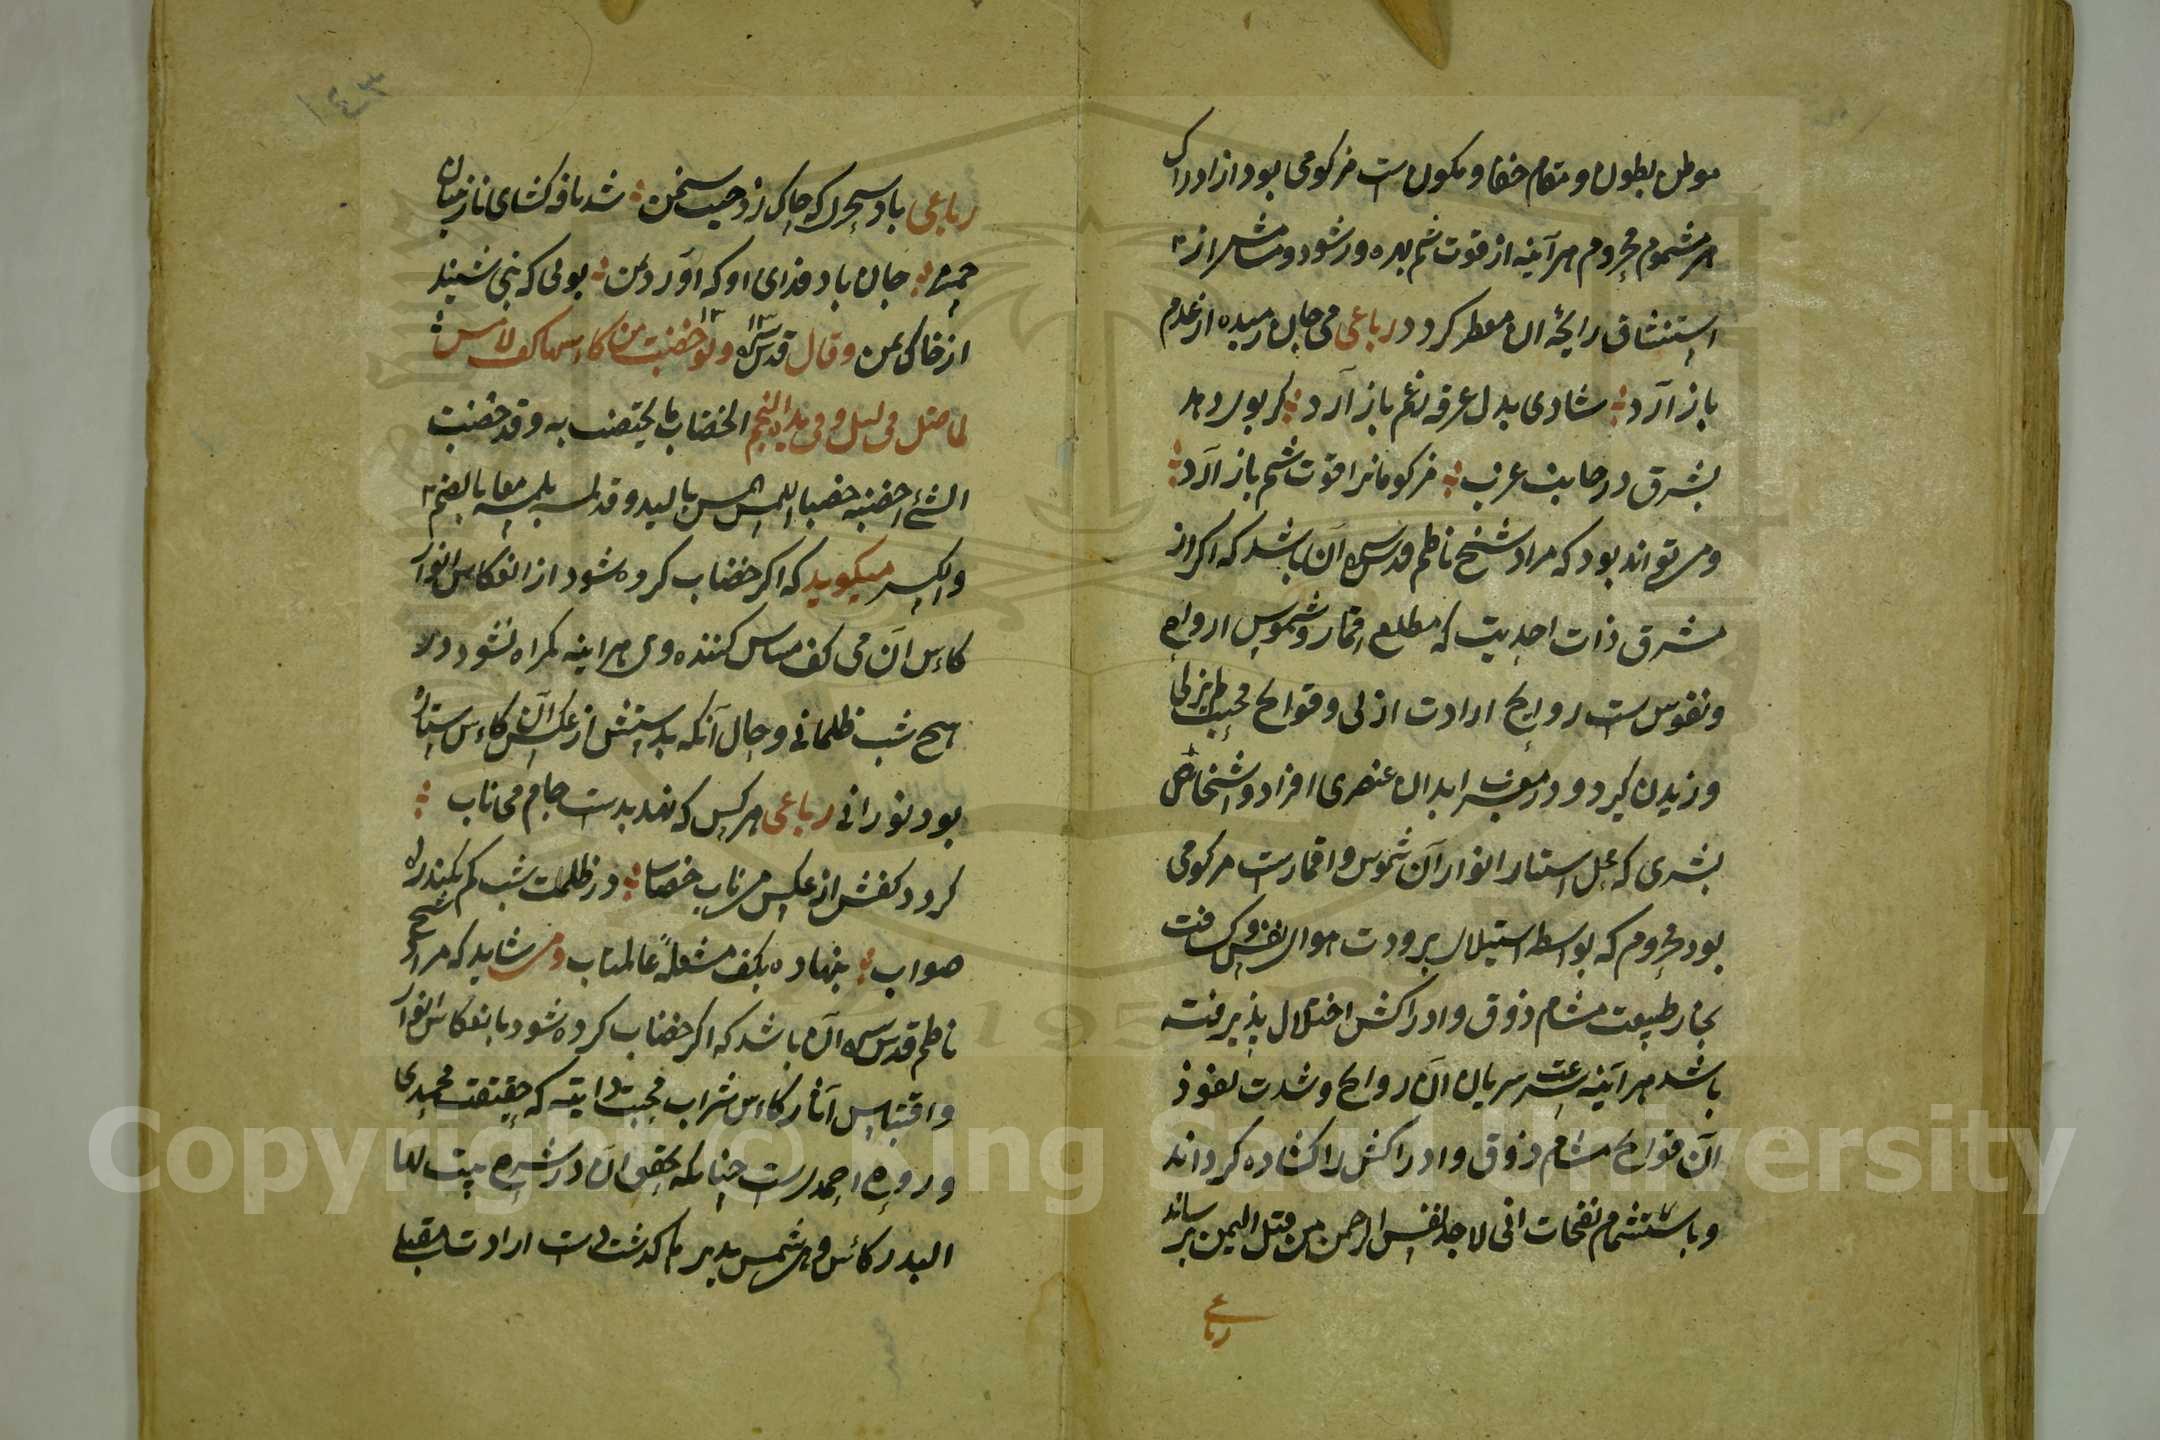 موطن بطون و مقام خفا و مکون است مزکومی بود از ادراک
هر مشموم محروم هرآینه از قوت شم بهره ور شود و مشامش از
استنشاق رایحۀ آن معطر کردد رباعی می جان رمیده از عدم
باز آرد شادی بدل غرقه بغم باز آرد کر بوی دهد
بشرق و در جانب غرب مزکومانرا قوت شم باز آرد
و می تواند بود که مراد شیخ ناظم قدس سره آن باشد که اکر از
مشرق ذات احدیت که مطلع اقمار و شموس ارواح
و نفوس است روایح ارادت ازلی و فوایح محبت لم یزلی
وزیدن کیرد و در مغرب ابدان عنصری افراد و اشخاص
بشری که محل استتار انوار آن شموس و اقمارست مزکومی
بود محروم که بواسطه استیلای برودت هوای نفس و کثافت
بخار طبیعت مشام ذوق و ادراکش اختلال پذیرفته
باشد هرآینه سرعت سریان آن روایح و شدت نفوذ
آن فوایح مشام ذوق و ادراکش را کشاده کرداند
و باستشمام نفحات انی لاجد نفس الرحمن من قبل الیمن برساند
رباعی
۱۴۳
رباعی باد سحری که چاک زد جیب سمن شد نافه کشای نازنینان
چمن جان باد فدای او که آورد بمن بویی که نبی شنید
از خاک یمن وقال قدس سره ولو خضبت من کاسها کف لامس
لما ضل فی لیل وفی یده النجم الخضاب ما یختضب به وقد خضبت
الشیء اخضبه خضبا اللمس المس بالید وقد لمسه یلمسه معا بالضم
والکسر میکوید که اکر خضاب کرده شود از انعکاس انوار
کاس آن می کف مساس کننده وی هرآینه کمراه نشود در
هیچ شب ظلمانی و حال آنکه بدستش از عکس آن کاس ستاره
بود نورانی رباعی هر کس که نهد بدست جام می ناب
کردد کفش از عکس می ناب خضاب در ظلمت شب کم نکند راه
صواب بنهاده بکف مشعلۀ عالمتاب و می شاید که مراد شیخ
ناظم قدس سره آن باشد که اکر خضاب کرده شود بانعکاس انوار
و اقتباس آثار کاس شراب محبت ذاتیه که حقیقت محمدی
و روح احمدیست چنانکه تحقیق آن در شرح بیت لها
البدر کاس وهی شمس یدیرها کذشت دست ارادت